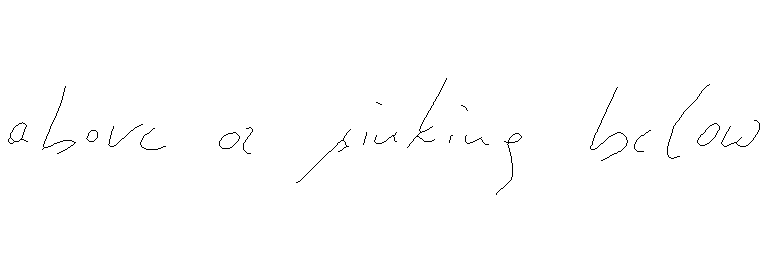 above or sinking below